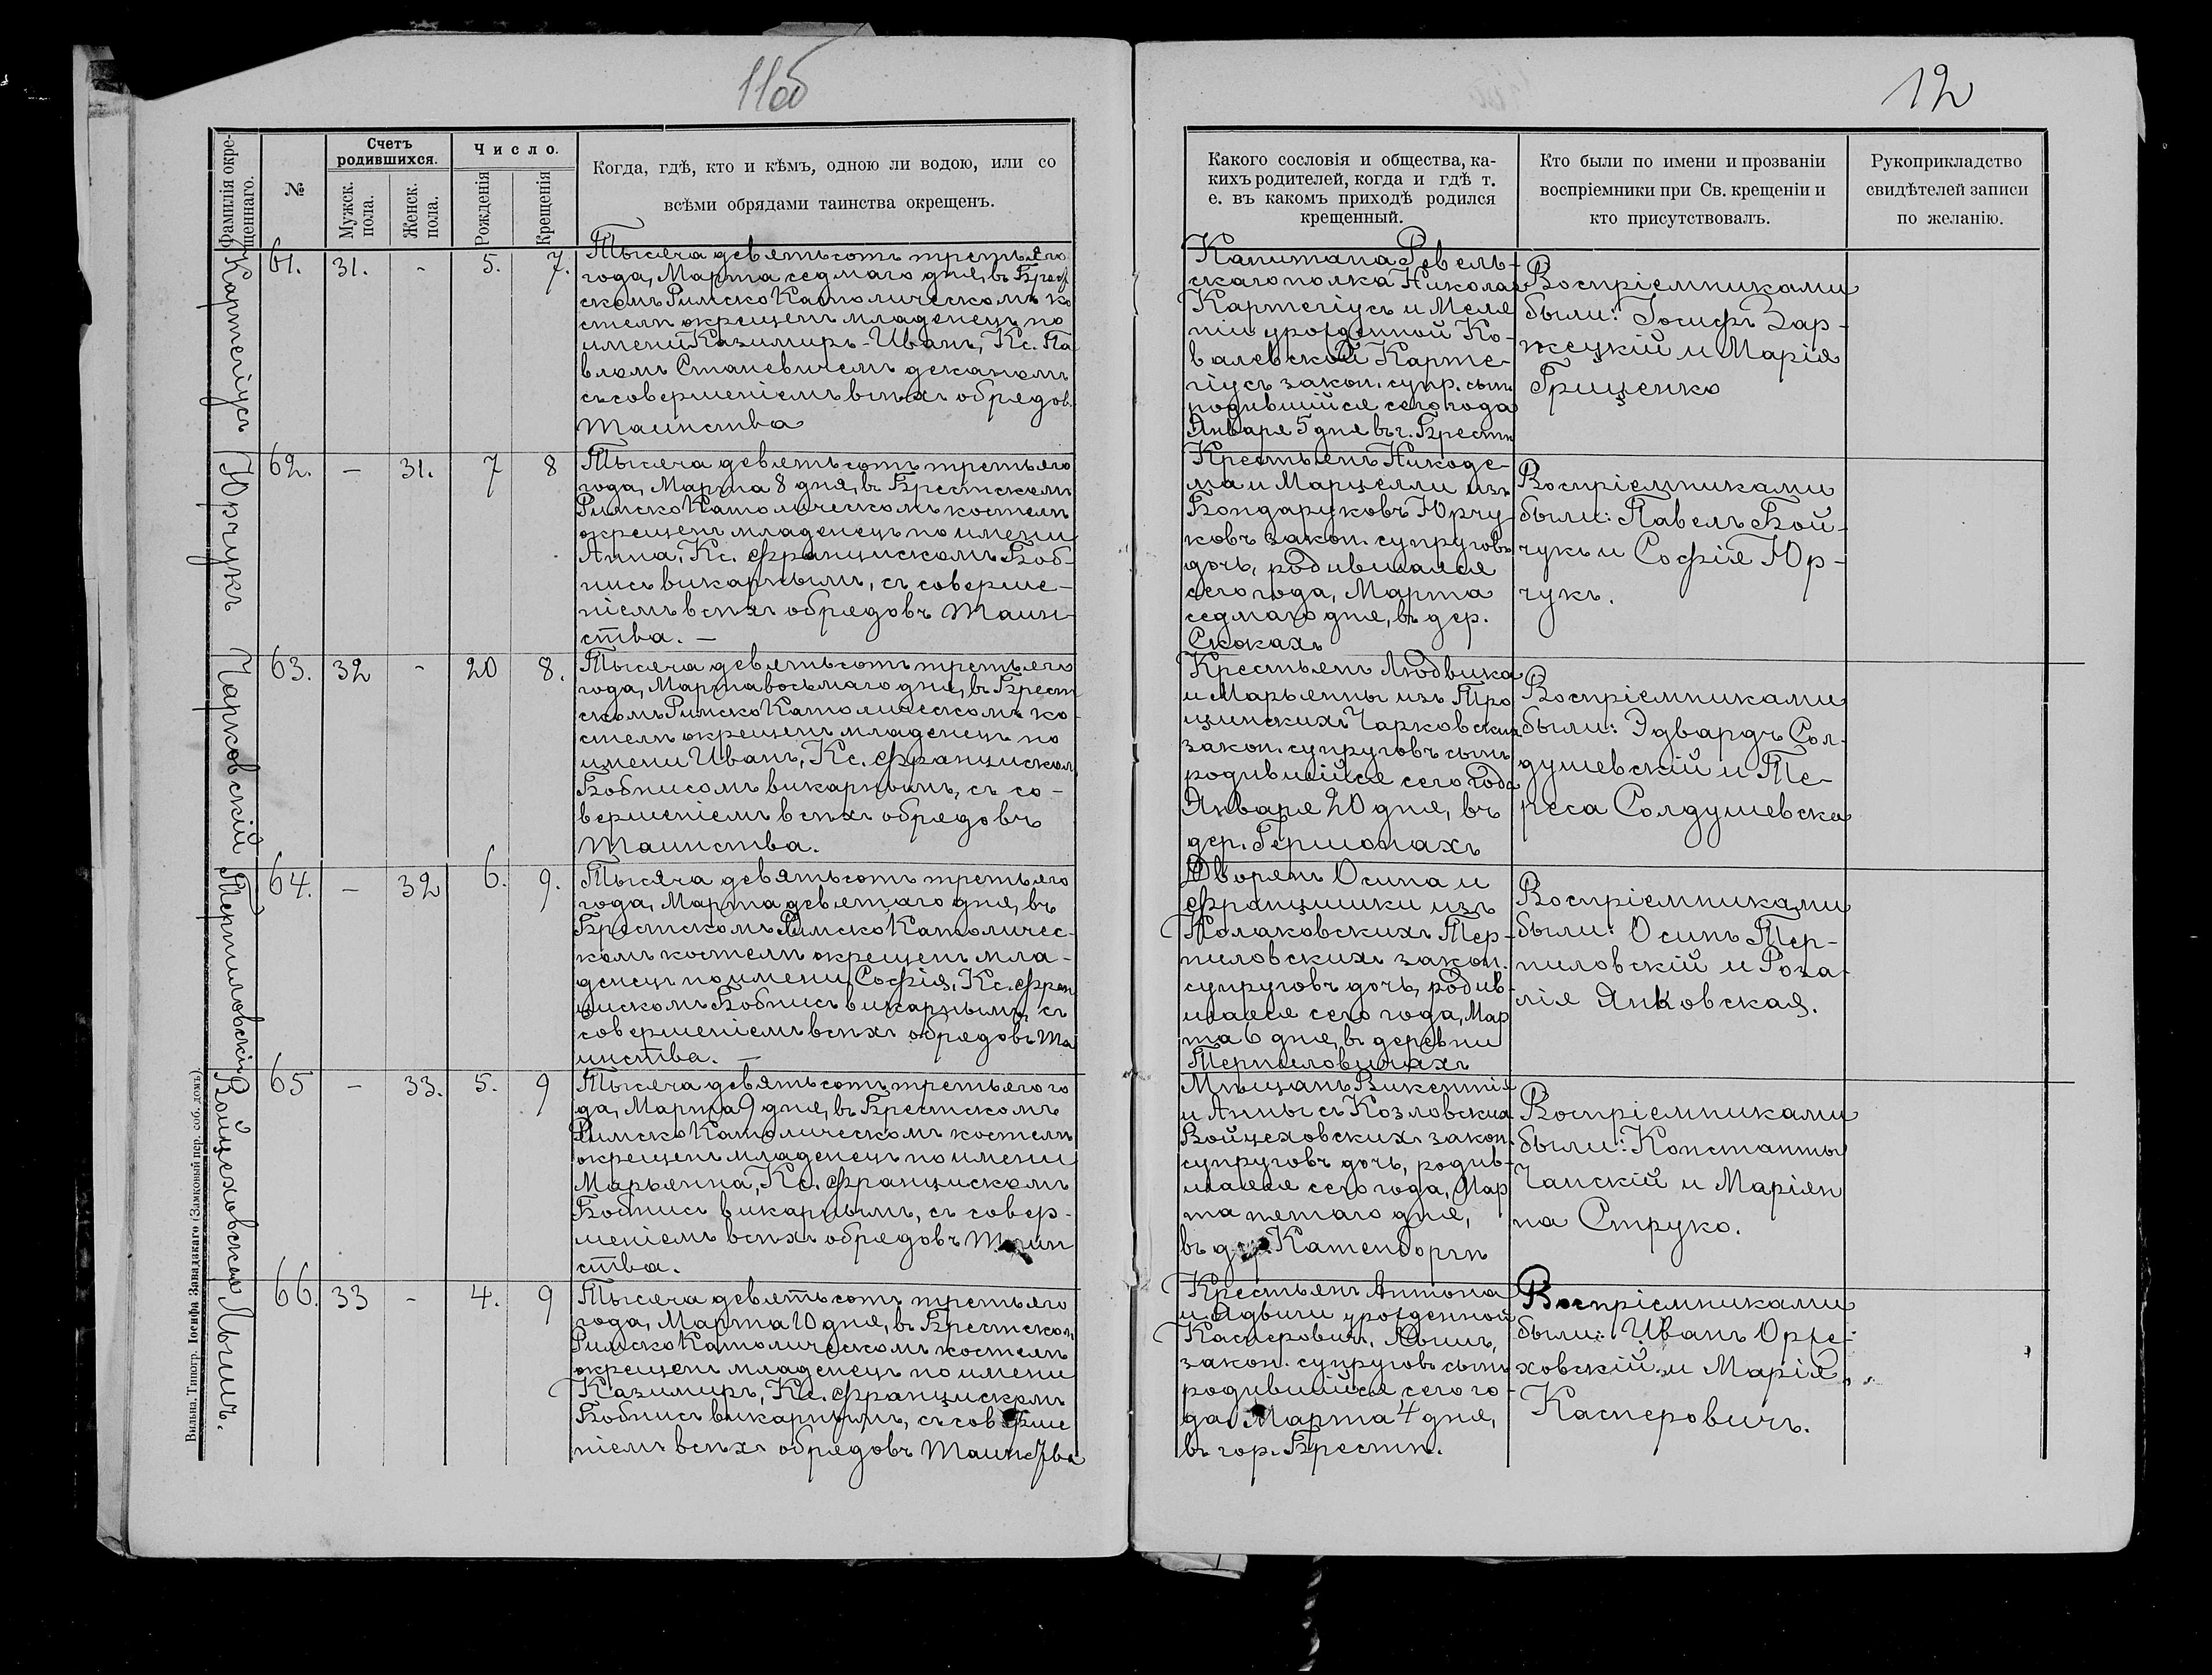 11об
12
Фамилія окре-
щеннаго.
№
Счетъ
родившихся.
Мужск.
пола.
Женск.
пола.
Число.
Рожденія
Крещенія
Когда, гдѣ, кто и кѣмъ, одною ли водою, или со
всѣми обрядами таинства окрещенъ.
Какого сословія и общества, ка-
кихъ родителей, когда и гдѣ т.
е. въ какомъ приходѣ родился
крещенный.
Кто были по имени и прозваніи
воспріемники при Св. крещеніи и
кто присутствовалъ.
Рукоприкладство
свидѣтелей записи
по желанію.
Картегіусъ
61. 31. - 5. 7.
Тысяча девятьсотъ третьяго
года, Марта седмаго дня, въ Брест
скомъ Римско Католическомъ ко
стелѣ окрещенъ младенецъ по
имени Казимиръ-Иванъ, Кс. Па
вломъ Станевичемъ деканомъ
съ совершеніемъ всѣхъ обрядов.
Таинства
Капитана Ревель-
скаго полка Николая
Картегіусъ и Мела
ніи урожденной Ко-
валевской Карте-
гіусъ закон. супр. сынъ
родившійся сего года
Января 5 дня въ г. Брестѣ
Воспріемниками
были: Іосифъ Зар-
жецкій и Марія
Грищенко
Юрчукъ
62. — 31. 7 8
Тысяча девятьсотъ третьяго
года, Марта 8 дня, въ Брестскомъ
Римско Католическомъ костелѣ
окрещенъ младенецъ по имени
Анна, Кс. Францискомъ Боб-
нисъ викарнымъ, съ соверше-
ніемъ всѣхъ обрядовъ Таин-
ства. —
Крестьянъ Никоде-
ма и Марцелли изъ
Бондаруковъ Юрчу-
ковъ закон. супруговъ
дочь, родившаяся
сего года, Марта
седмаго дня, въ дер.
Скокахъ
Воспріемниками
были: Павелъ Бой-
чукъ и Софія Юр-
чукъ.
Чарковскій
63. 32 - 20 8.
Тысяча девятьсотъ третьяго
года, Марта восьмаго дня, въ Брест
скомъ Римско Католическомъ ко
стелѣ окрещенъ младенецъ по
имени Иванъ, Кс. Францискомъ
Бобнисомъ викарнымъ, съ со-
вершеніемъ всѣхъ обрядовъ
Таинства.
Крестьянъ Людвика
и Марьянны изъ Тро
цинскихъ Чарковских
закон. супруговъ сынъ
родившійся сего года
Января 20 дня, въ
дер. Гершонахъ
Воспріемниками
были: Эдвардъ Сол-
душевскій и Те-
реса Солдушевска
Терпиловскій
64. — 32 6. 9.
Тысяча девятьсотъ третьяго
года, Марта девятаго дня, въ
Брестскомъ Римско Католичес-
комъ костелѣ окрещенъ мла-
денецъ по имени Софія, Кс. Фран
цискомъ Бобнисъ викарнымъ, съ
совершеніемъ всѣхъ обрядовъ Та
инства. —
Дворянъ Осипа и
Францишки изъ
Полаковскихъ Тер-
пиловскихъ закон.
супруговъ дочь, родив-
шаяся сего года, Мар
та 6 дня, въ деревни
Терпиловичахъ
Воспріемниками
были: Осипъ Тер-
пиловскій и Роза-
лія Янковская.
Войцеховская
65 — 33. 5. 9
Тысяча девятьсотъ третьяго го
да, Марта 9 дня, въ Брестскомъ
Римско Католическомъ костелѣ
окрещенъ младенецъ по имени
Марьянна, Кс. Францискомъ
Бобнисъ викарнымъ, съ совер-
шеніемъ всѣхъ обрядовъ Таин
ства.
Мѣщанъ Викентія
и Анны съ Козловских
Войцеховскихъ закон.
супруговъ дочь, родив-
шаяся сего года, Мар
та пятаго дня,
въ дер. Катенборгѣ
Воспріемниками
были: Константы
Чапскій и Маріян
на Струко.
Лышъ.
66. 33 - 4. 9
Тысяча девятьсотъ третьяго
года, Марта 10 дня, въ Брестском
Римско Католическомъ костелѣ
окрещенъ младенецъ по имени
Казимиръ, Кс. Францискомъ
Бобнисъ викарнымъ, съ соверше
ніемъ всѣхъ обрядовъ Таинства
Крестьянъ Антона
и Ядвиги урожденной
Касперовичъ, Лышъ,
закон. супруговъ сынъ
родившійся сего го-
да Марта 4 дня,
въ гор. Брестѣ.
Воспріемниками
были: Иванъ Орже-
ховскій и Марія
Касперовичъ.
Вильна. Типогр. Іосифа Завадзкаго (Замковый пер. соб. домъ).